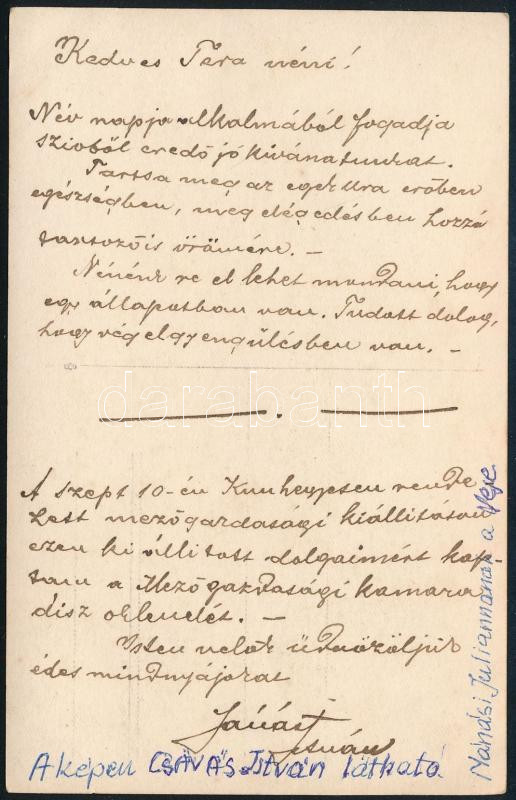 Kedves Tera néni!
Név napja alkalmából fogadja
szivből eredő jó kivánatunkat.
Tartsa meg az eger Ura erőben
egészségben, meg elégedésben hozzá
tartozóis örömére. –
Nénénk re el lehet mondani, hogy
egy állapotban van. Tudott dolog,
hogy vég elgyengülésben van. –
darabanth
A szept 10-én Kunhegyesen rende
zett mezőgazdasági kiállitáson
ezen ki állitott dolgaimért kap-
tam a Mezőgazdasági kamara
disz oklevelét. –
Isten velök üdvözöljük
édes mindnyájokat
István
A képen CSÁVÁS István látható.
Juliannának a férje.